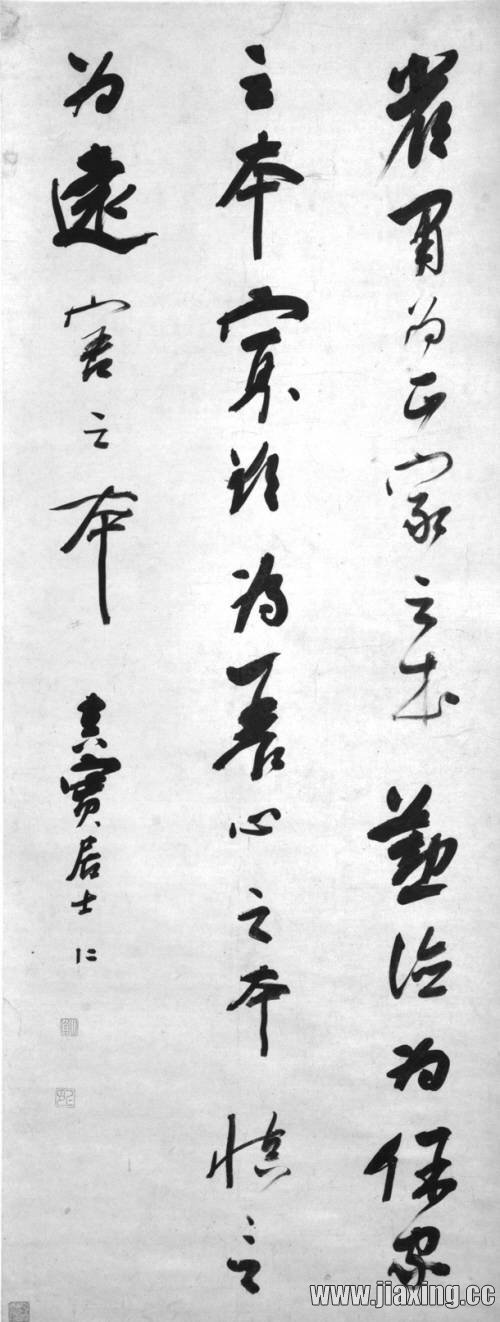 嚴肅為正家之本勤儉為保家
之本寡欲為養心之本慎言
為遠害之本
真實居士
www.jiaxing.cc